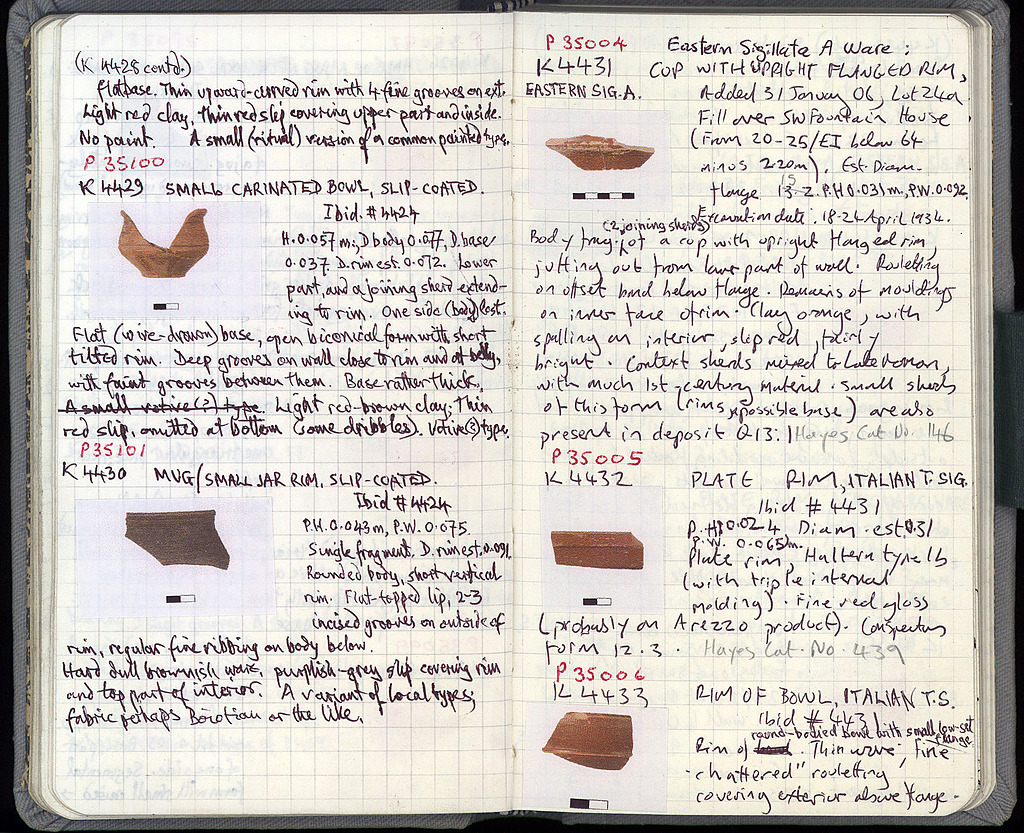 (K 4428 contd.)
flat base. Thin upward-curved rim with 4 fine grooves on ext.
Light red clay, thin red slip covering upper part and inside.
No paint. A small (ritual) version of a common painted type.
P 35100
K 4429 SMALL CARINATED BOWL, SLIP-COATED.
Ibid. #4424
H. 0.057 m; D body 0.077, D. base
0.037. D. rim est. 0.072. Lower
part, and a joining sherd extend-
ing to rim. One side (body) lost.
Flat (wire-drawn) base, open biconical form with short
tilted rim. Deep grooves on wall close to rim and at belly,
with faint grooves between them. Base rather thick.
A small votive(?) type. Light red-brown clay; Thin
red slip, omitted at bottom (some dribbles). Votive(?) type.
P 35101
K 4430 MUG/SMALL JAR RIM, SLIP-COATED.
Ibid #4424
P.H. 0.043 m, P.W. 0.075.
Single fragment. D. rim est. 0.091.
Rounded body, short vertical
rim. Flat-topped lip, 2-3
incised grooves on outside of
rim, regular fine ribbing on body below.
Hard dull brownish ware, purplish-grey slip covering rim
and top part of interior. A variant of local types;
fabric perhaps Boiotian or the like.
P 35004 Eastern Sigillata A Ware:
K 4431 CUP WITH UPRIGHT FLANGED RIM,
EASTERN SIG. A. Added 31 January 06, Lot 24a
Fill over SW Fountain House
(From 20-25/EI below 64
minus 2.20m). Est. Diam.
flange 13.2. P.H 0.031 m, P.W. 0.092
Excavation date. 18-24 April 1934.
(2 joining sherds)
Body frag. of a cup with upright flanged rim,
jutting out from lower part of wall. Rouletting
on offset band below flange. Remains of mouldings
on inner face of rim. Clay orange, with
spalling on interior, slip red, fairly
bright. Context sherds mixed to Late Roman,
with much 1st-century material. Small sherds
of this form (rims & possible base) are also
present in deposit Q 13:1 Hayes Cat No. 146
P 35005
K 4432 PLATE RIM, ITALIAN T. SIG.
Ibid #4431
P.H 0.024 Diam. est 0.31
P.W. 0.065m.
Plate rim, Haltern type 1b
(with triple internal
molding). Fine red gloss
(probably an Arezzo product). Conspectus
form 12.3. Hayes Cat. No. 439
P 35006
K 4433 RIM OF BOWL, ITALIAN T.S.
Ibid #4431
round-bodied bowl with small low-set flange
Rim of Thin ware; fine
"chattered" rouletting
covering exterior above flange.